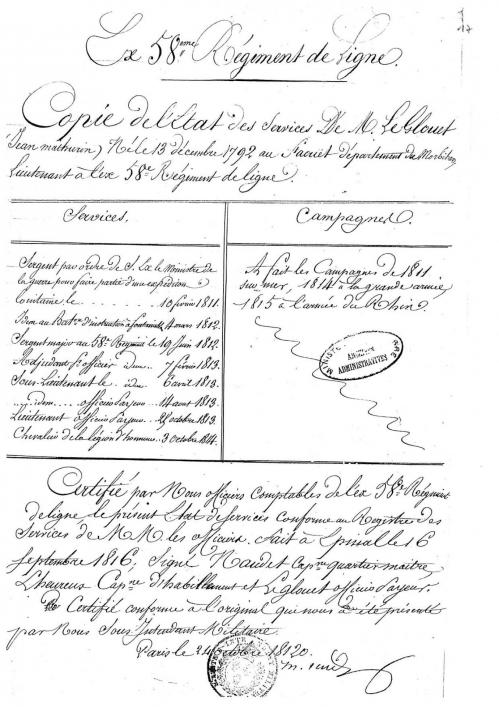 17
Ex 58eme Régiment de Ligne.
Copie de l'Etat des Services De M. Le Glouet
(Jean mathurin) Né le 13 décembre 1792 au Faouët département du Morbihan
Lieutenant à l'ex 58e Régiment de ligne.
Services.
Campagnes.
Sergent par ordre de S. Ex. le Ministre de
la guerre pour faire partie d'une expédition
lointaine le 10 février 1811.
Idem au Baton d'instruction à fontainebleau 4 mars 1812.
Sergent major au 58e Régiment le 19 Juin 1812.
Adjudant Sr officier idem 7 février 1813.
Sous-Lieutenant le idm 6 avril 1813.
idem officier Payeur 14 aout 1813.
Lieutenant officier Payeur 25 octobre 1813.
Chevalier de la légion d'honneur 3 octobre 1814.
A fait les Campagnes de 1811
sur mer, 1814 à la grande armée,
1815 à l'armée du Rhin.
ARCHIVES
ADMINISTRATIVES
Certifié par Nous officiers Comptables de l'ex 58e Régiment
de ligne le présent Etat de Services conforme au Registre des
Services de MM. les officiers. fait à Epinal le 16
Septembre 1816, Signé Naudet Capne quartier maitre,
L'heureux Capne d'habillement et Le glouet officier Payeur.
Certifié conforme à l'original qui nous a été présenté
par Nous Sous Intendant Militaire.
Paris le 24 octobre 1820.